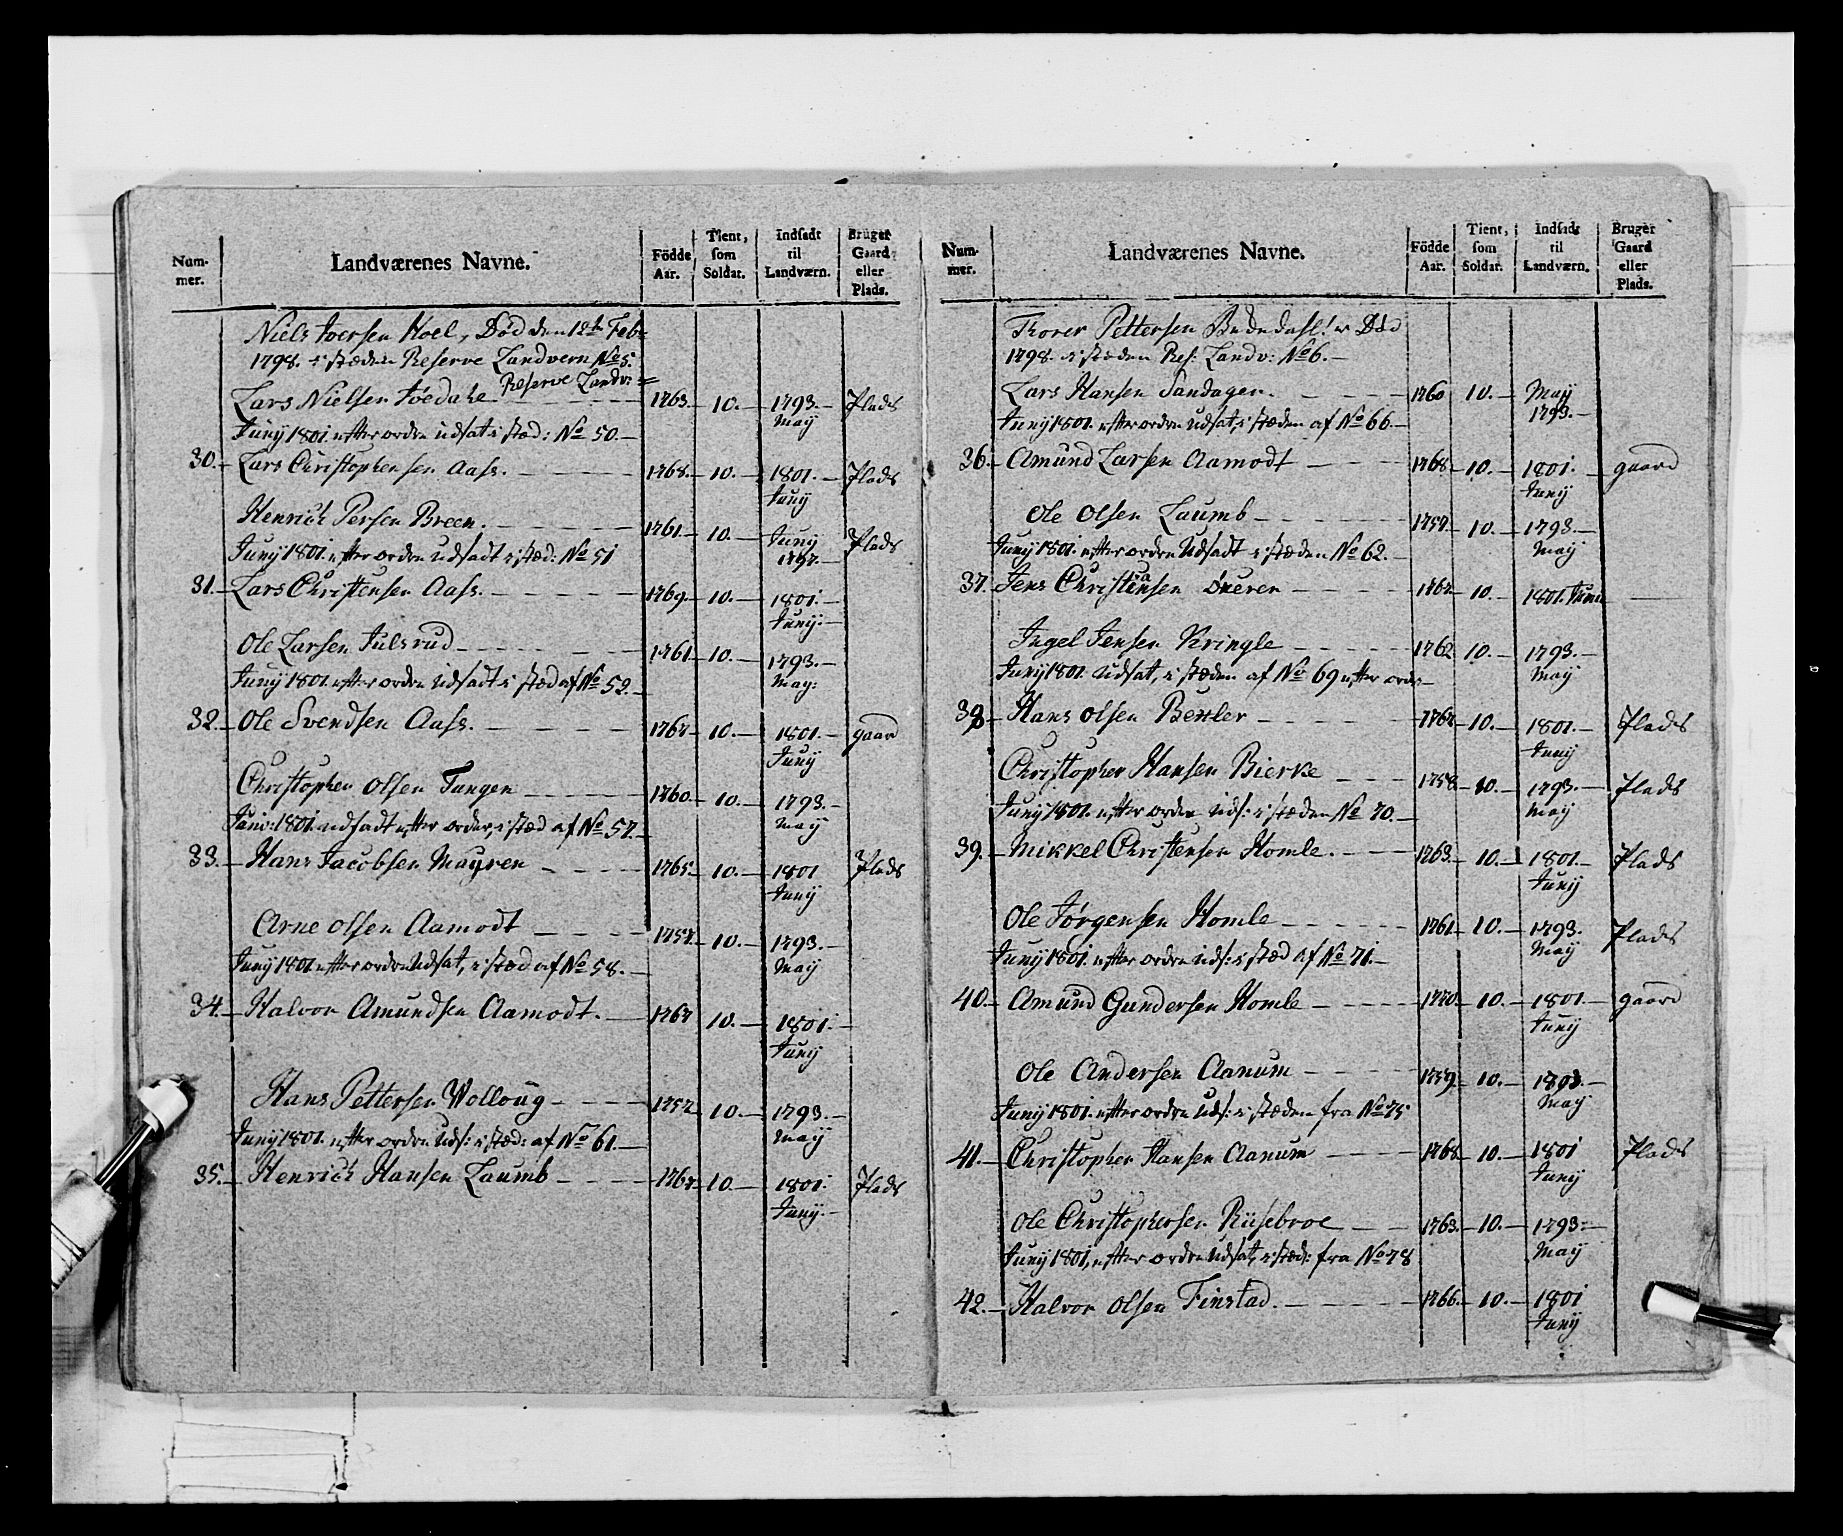 Num-mer. Landværenes Navne. Födde Aar. Tient, som Soldat. Indsadt til Landværn. Bruger Gaard eller Plads.
Niels Iversen Hoel, Död den 12te Feb=
1798. i stæden Reserve Landvern No 5.
Reserve Landv: =
Lars Nielsen - - - 1763. 10. 1793. May Plads
Juny 1801. efter ordre udsat i stæd: No 50.
30. Lars Christophersen Aass. - - - 1768. 10. 1801. Juny Plads
Henrich Persen Breen. - - - 1761. 10. Juny 1797. Plads
Juny 1801. efter ordre Udsadt i stæd: No 51
31. Lars Christensen Aass. - - - 1769. 10. 1801. Juny.
Ole Larsen Julsrud - - - 1761 10. 1793. May:
Juny 1801. efter ordre Udsadt i stæd af No 52.
32. Ole Svendsen Aass. - - - 1767. 10. 1801. Juny gaard
Christopher Olsen Tangen - - - 1760. 10. 1793. May
Juni: 1801. udsadt efter ordre, i stæd af No 57.
33. Hans Jacobsen Mayren - - - 1765. 10. 1801 Juny Plads
Arne Olsen Aamodt - - - 1757. 10. 1793. May
Juny 1801 efter ordre Udsat, i stæd af No 58.
34. Halvor Amundsen Aamodt. 1767 10. 1801. Juny
Hans Pettersen Wolloug - - - 1757 10. 1793. May
Juny 1801. efter ordre Uds: i stæd: af No 61.
35. Henrich Hansen Laumb - - - 1767 10. 1801. Juny. Plads
Num-mer. Landværenes Navne. Födde Aar. Tient, som Soldat. Indsadt til Landværn. Bruger Gaard eller Plads.
Thorer Pettersen er Död
1798. i stæden Res: Landv: No 6.
Lars Hansen Sandager. - - - 1760 10. May 1793.
Juny 1801. efter ordre udsat, i stæden af No 66.
36. Amund Larsen Aamodt - - - 1768. 10. 1801. Juny gaard
Ole Olsen Laumb - - - 1757. 10. 1793. May
Juny 1801. efter ordre Udsadt i stæden No 62.
37. Jens Christiansen - - - 1767. 10. 1801. Juni
Ingel Jensen Kringle - - - 1762 10. 1793. May
Juny 1801. Udsat, i stæden af No 69 efter ordr
38. Hans Olsen - - - 1767. 10. 1801. Juny Plads
Christopher Hansen Bierke - - - 1758. 10. 1793. May Plads
Juny 1801. efter ordre Uds: i stæden No 70.
39. Mikkel Christensen Homle. - - - 1763. 10. 1801. Juny Plads
Ole Jørgensen Homle - - - 1761. 10. 1793. May Plads
Juny 1801. efter ordre Uds: i stæd af No 71.
40. Amund Gundersen Homle - - - 1770. 10. 1801. Juny gaard
Ole Andersen Aanum - - - 1759. 10. May
Juny 1801. efter ordre Uds: i stæden fra No 75
41. Christopher Hansen Aanum - - - 1768. 10. 1801 Juny Plads
Ole Christophersen Riisebroe - - - 1763. 10. 1793. May
Juny 1801, efter ordre Udsat, i stæd: fra No 78
42. Halvor Olsen Finstad. - - - 1766. 10. 1801 Juny